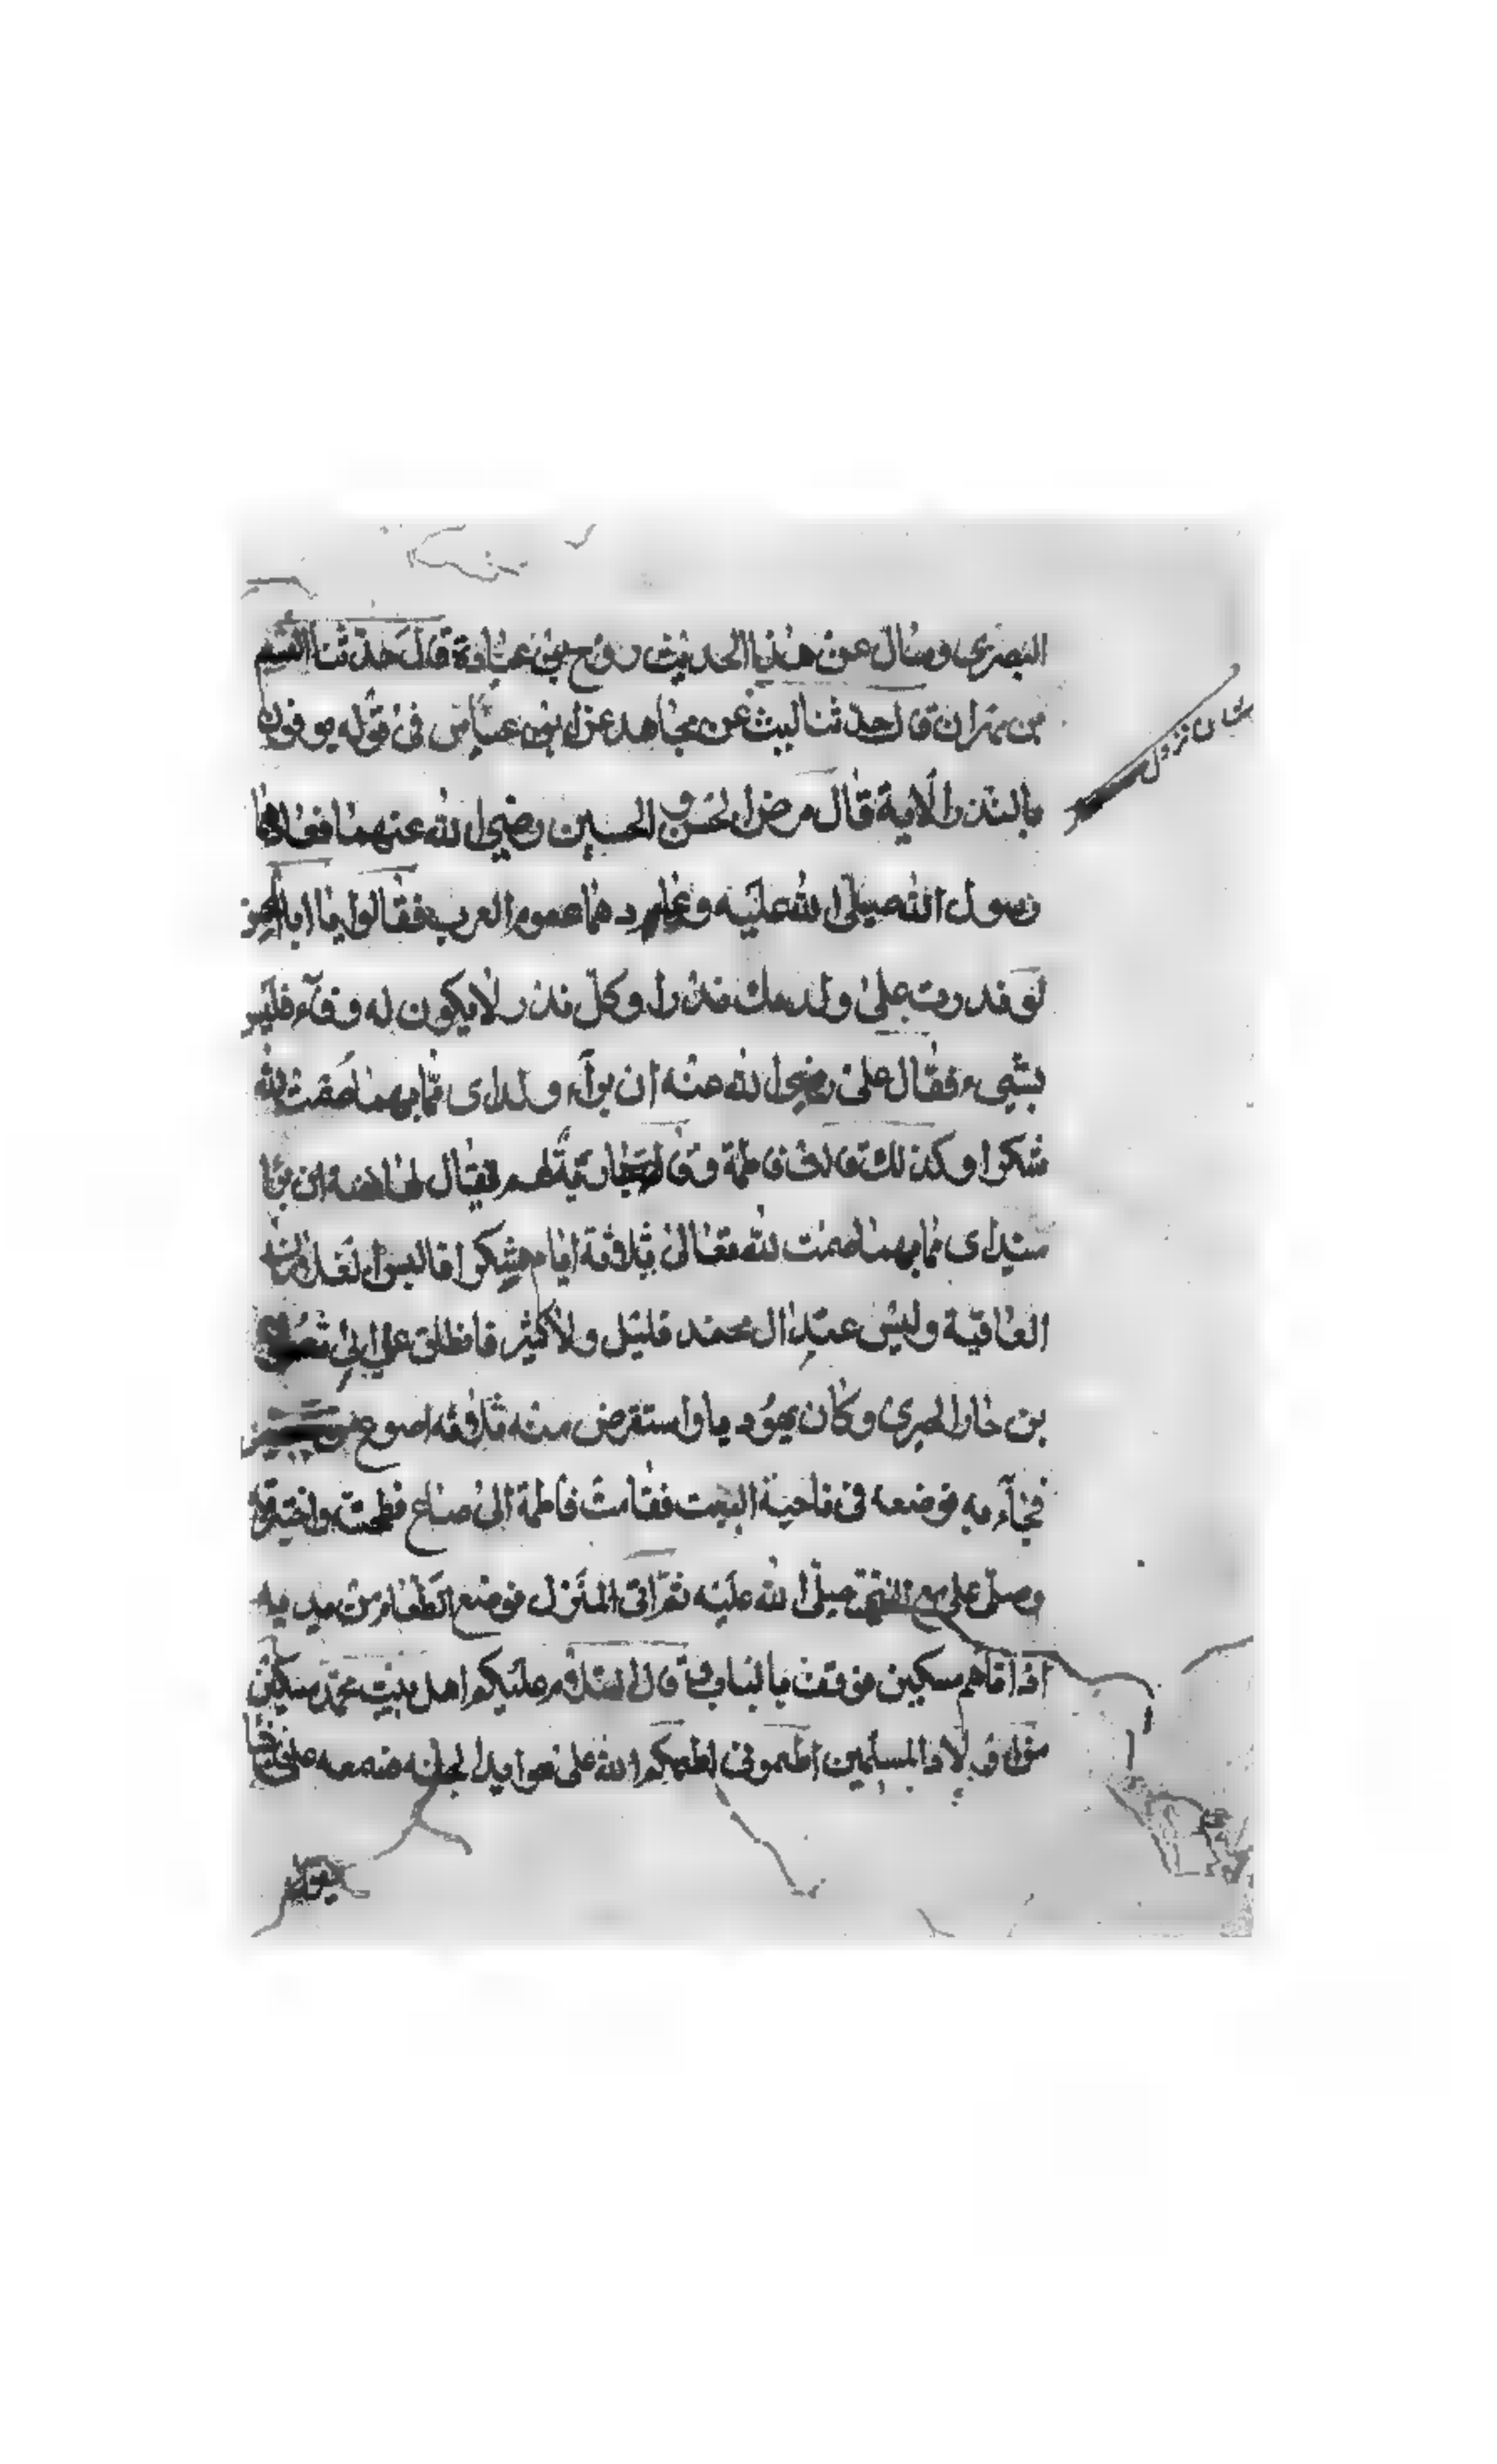 البصري وسال عن هذا الحديث روح بن عبادة قال حدثنا القسم
بن بهران قال حدثنا ليث عن مجاهد عن ابن عباس في قوله يوفون
بالنذر الآية قال مرض الحسن و الحسين رضي الله عنهما فعادهما
رسول الله صلى الله عليه وعادهما عموم العرب فقالوا يا ابا الحسن
لو نذرت على ولدك نذرا وكل نذر لا يكون له وفآء فليس
بشيء فقال علي رضي الله عنه ان برآء ولداي مما بهما صمت لله
شكرا وكذلك قالت فاطمة وقالت جارية لهم يقال لها فضة ان برا
سيداي مما بهما صمت لله تعالى ثلاثة ايام شكرا فالبس الغلامان
العافية وليس عند ال محمد قليل ولا كثير فانطلق علي الى شمعون
بن حار الخيبري وكان يهوديا واستقرض منه ثلاثة اصوع من شعير
فجآء به فوضعه في ناحية البيت فقامت فاطمة الى صاع فطحنته واختبزته
وصلى علي مع النبي صلى الله عليه ثم اتى المنزل فوضع الطعام بين يديه
اذ اتاهم مسكين فوقف بالباب قال السلام عليكم اهل بيت محمد مسكين
من اولاد المسلمين اطعموني اطعمكم الله على موايد الجنة فسمعه علي
شان نزول